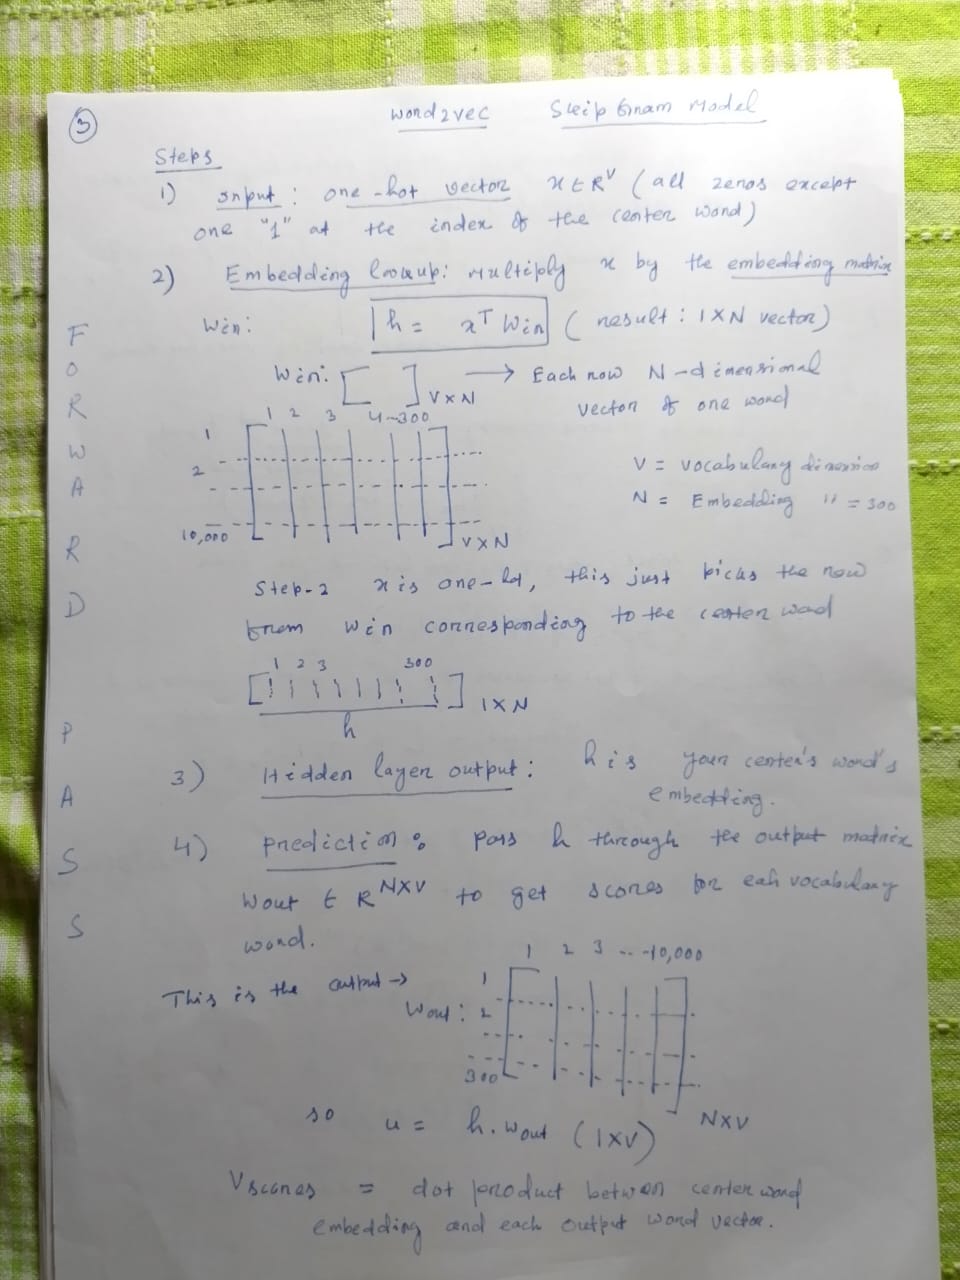 3
word2vec Skip Gram Model
Steps
1) Input : one-hot vector x ∈ R^V (all zeros except
one "1" at the index of the center word)
2) Embedding lookup: Multiply x by the embedding matrix
Win: h = x^T Win (result : 1XN vector)
Win: [ ] VXN → Each row N-dimensional
vector of one word
1 2 3 4--300
1
2
10,000
VXN
V = vocabulary dimension
N = Embedding " = 300
Step-2 x is one-hot, this just picks the row
from Win corresponding to the center word
1 2 3 300
[ ] 1XN
h
3) Hidden layer output : h is your center's word's
embedding.
4) prediction : pass h through the output matrix
Wout ∈ R^NXV to get scores for eah vocabulary
word.
1 2 3 ---10,000
This is the output → Wout :
1
2
300
NXV
so u = h.Wout (1XV)
V scores = dot product betwen center word
embedding and each output word vector.
F
O
R
W
A
R
D
P
A
S
S